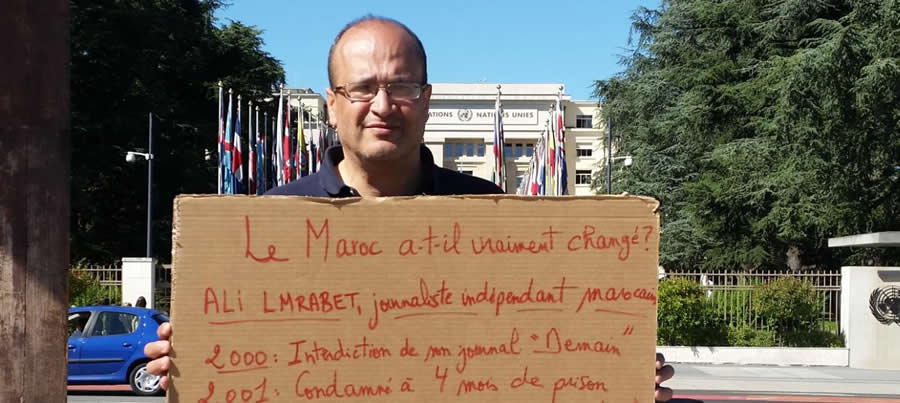 NATIONS NATIONS UNIES
Le Maroc a-t-il vraiment changé?
ALi LMRABET, journaliste indépendant marocain
2000: Interdiction de mn journal "Demain"
2001: Condamné à 4 mois de prison